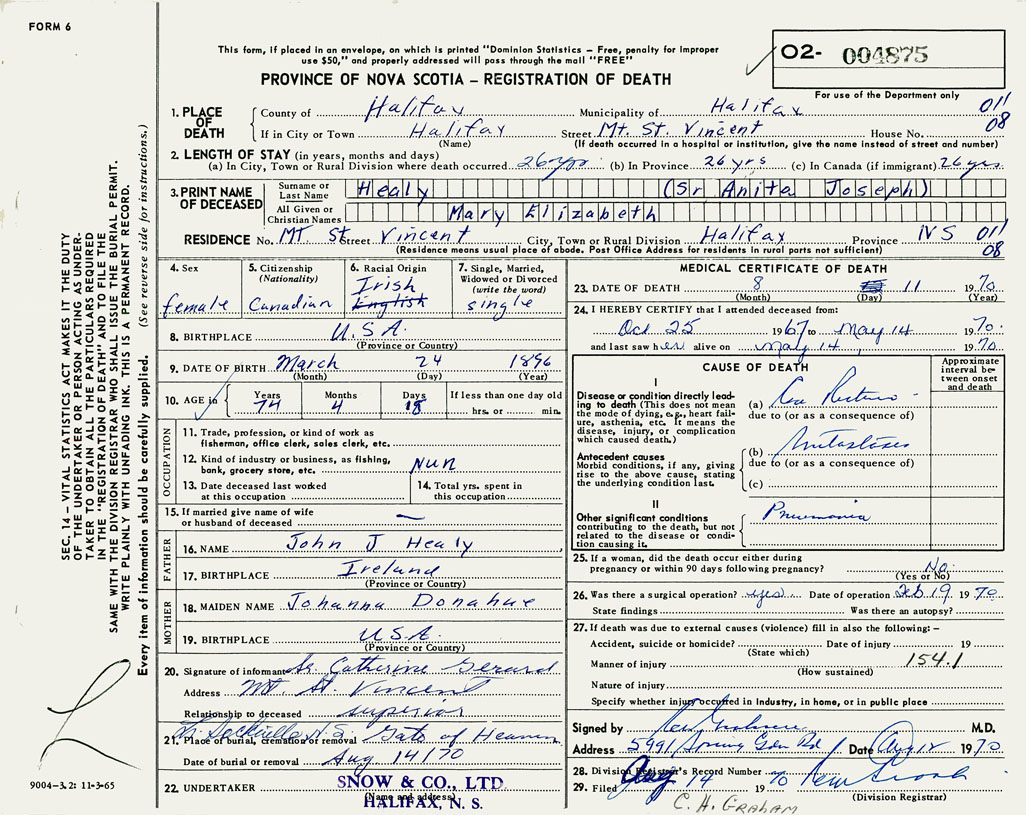 FORM 6
This form, if placed in an envelope, on which is printed "Dominion Statistics – Free, penalty for improper
use $50," and properly addressed will pass through the mail "FREE"
PROVINCE OF NOVA SCOTIA – REGISTRATION OF DEATH
02- 004875
For use of the Department only
1. PLACE OF DEATH
County of Halifax Municipality of Halifax 011
If in City or Town Halifax Street Mt. St. Vincent House No. 08
(Name) (If death occurred in a hospital or institution, give the name instead of street and number)
2. LENGTH OF STAY (in years, months and days)
(a) In City, Town or Rural Division where death occurred 26 yrs (b) In Province 26 yrs (c) In Canada (if immigrant) 26 yrs
3. PRINT NAME OF DECEASED
Surname or Last Name Healy (Sr Anita Joseph)
All Given or Christian Names Mary Elizabeth
RESIDENCE No. Mt St Street Vincent City, Town or Rural Division Halifax Province NS 011
(Residence means usual place of abode. Post Office Address for residents in rural parts not sufficient) 08
4. Sex female
5. Citizenship (Nationality) Canadian
6. Racial Origin Irish English
7. Single, Married, Widowed or Divorced (write the word) single
8. BIRTHPLACE U.S.A.
(Province or Country)
9. DATE OF BIRTH March 24 1896
(Month) (Day) (Year)
10. AGE in Years 74 Months 4 Days 18 If less than one day old hrs. or min.
OCCUPATION
11. Trade, profession, or kind of work as
fisherman, office clerk, sales clerk, etc.
12. Kind of industry or business, as fishing,
bank, grocery store, etc. Nun
13. Date deceased last worked
at this occupation
14. Total yrs. spent in
this occupation
15. If married give name of wife
or husband of deceased —
FATHER
16. NAME John J Healy
17. BIRTHPLACE Ireland
(Province or Country)
MOTHER
18. MAIDEN NAME Johanna Donahue
19. BIRTHPLACE U.S.A.
(Province or Country)
20. Signature of informant Sr. Catherine Gerard
Address Mt. St. Vincent
Relationship to deceased superior
21. Place of burial, cremation or removal Gate of Heaven
Date of burial or removal Aug 14/70
22. UNDERTAKER SNOW & CO., LTD.
(Name and address)
HALIFAX, N. S.
MEDICAL CERTIFICATE OF DEATH
23. DATE OF DEATH 8 11 1970
(Month) (Day) (Year)
24. I HEREBY CERTIFY that I attended deceased from:
Oct 25 1967 to May 14 1970.
and last saw her alive on May 14 1970.
CAUSE OF DEATH
Approximate interval between onset and death
I
Disease or condition directly leading
to death (This does not mean
the mode of dying, e.g., heart failure,
asthenia, etc. It means the
disease, injury, or complication
which caused death.)
(a) Ca Rectum
due to (or as a consequence of)
Antecedent causes
Morbid conditions, if any, giving
rise to the above cause, stating
the underlying condition last.
(b) Metastases
due to (or as a consequence of)
(c)
II
Other significant conditions
contributing to the death, but not
related to the disease or condition
causing it.
Pneumonia
25. If a woman, did the death occur either during
pregnancy or within 90 days following pregnancy? No.
(Yes or No)
26. Was there a surgical operation? yes Date of operation Feb 19 1970
State findings Was there an autopsy?
27. If death was due to external causes (violence) fill in also the following: –
Accident, suicide or homicide? Date of injury 19
(State which)
Manner of injury 154.1
(How sustained)
Nature of injury
Specify whether injury occurred in Industry, in home, or in public place
Signed by M.D.
Address 5991 Spring Gdn Rd Date Aug 12 1970
28. Division Registrar's Record Number
29. Filed Aug 14 70
(Division Registrar)
C. H. GRAHAM
SEC. 14 – VITAL STATISTICS ACT MAKES IT THE DUTY
OF THE UNDERTAKER OR PERSON ACTING AS UNDER-
TAKER TO OBTAIN ALL THE PARTICULARS REQUIRED
IN THE "REGISTRATION OF DEATH" AND TO FILE THE
SAME WITH THE DIVISION REGISTRAR WHO SHALL ISSUE THE BURIAL PERMIT.
WRITE PLAINLY WITH UNFADING INK. THIS IS A PERMANENT RECORD.
Every item of information should be carefully supplied. (See reverse side for instructions.)
9004–3.2: 11-3-65